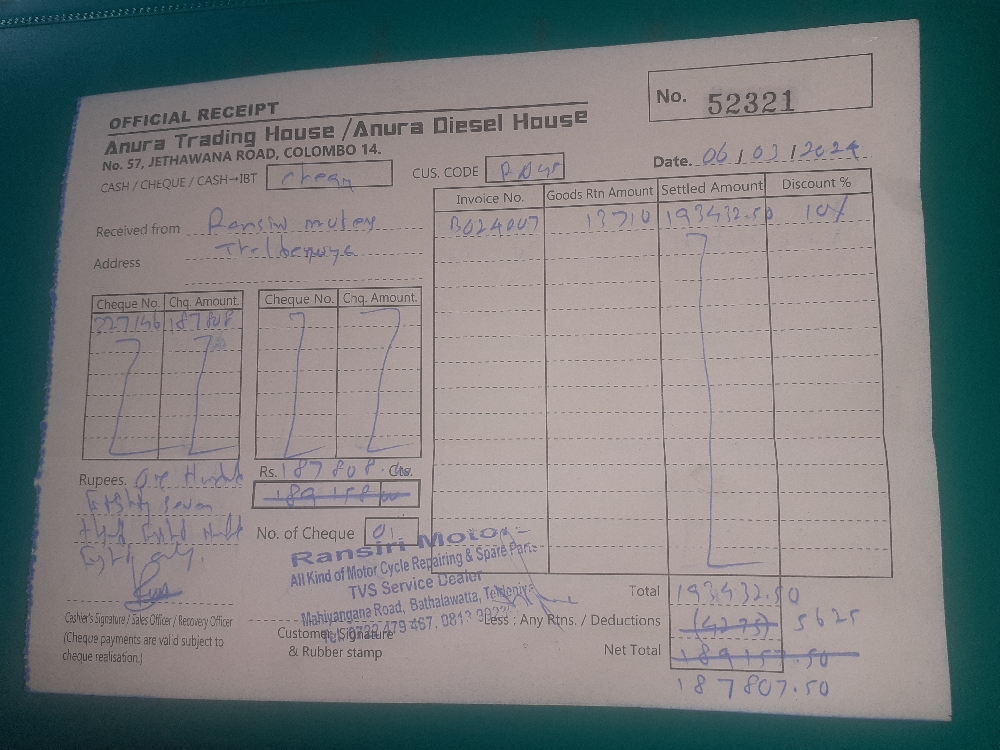 OFFICIAL RECEIPT
No. 52321
Anura Trading House /Anura Diesel House
No. 57, JETHAWANA ROAD, COLOMBO 14.
Date. 06 / 03 / 2024
CASH / CHEQUE / CASH→IBT
CUS. CODE
Invoice No. Goods Rtn Amount Settled Amount Discount %
B024007 13710 193432.50 10%
Received from Ransiri
Address
Cheque No. Chq. Amount. Cheque No. Chq. Amount.
227146 187808
Rupees. One
Eighty seven
Rs. 187808 . Cts.
189158
No. of Cheque 01
Ransiri Motor
All Kind of Motor Cycle Repairing & Spare Parts
TVS Service Dealer
Mahiyangana Road, Bathalawatta, Teldeniya
Cashier's Signature / Sales Officer / Recovery Officer
(Cheque payments are valid subject to
cheque realisation.)
Customer Signature
& Rubber stamp
Total 193432.50
Less : Any Rtns. / Deductions (4275) 5625
Net Total 189157.50
187807.50